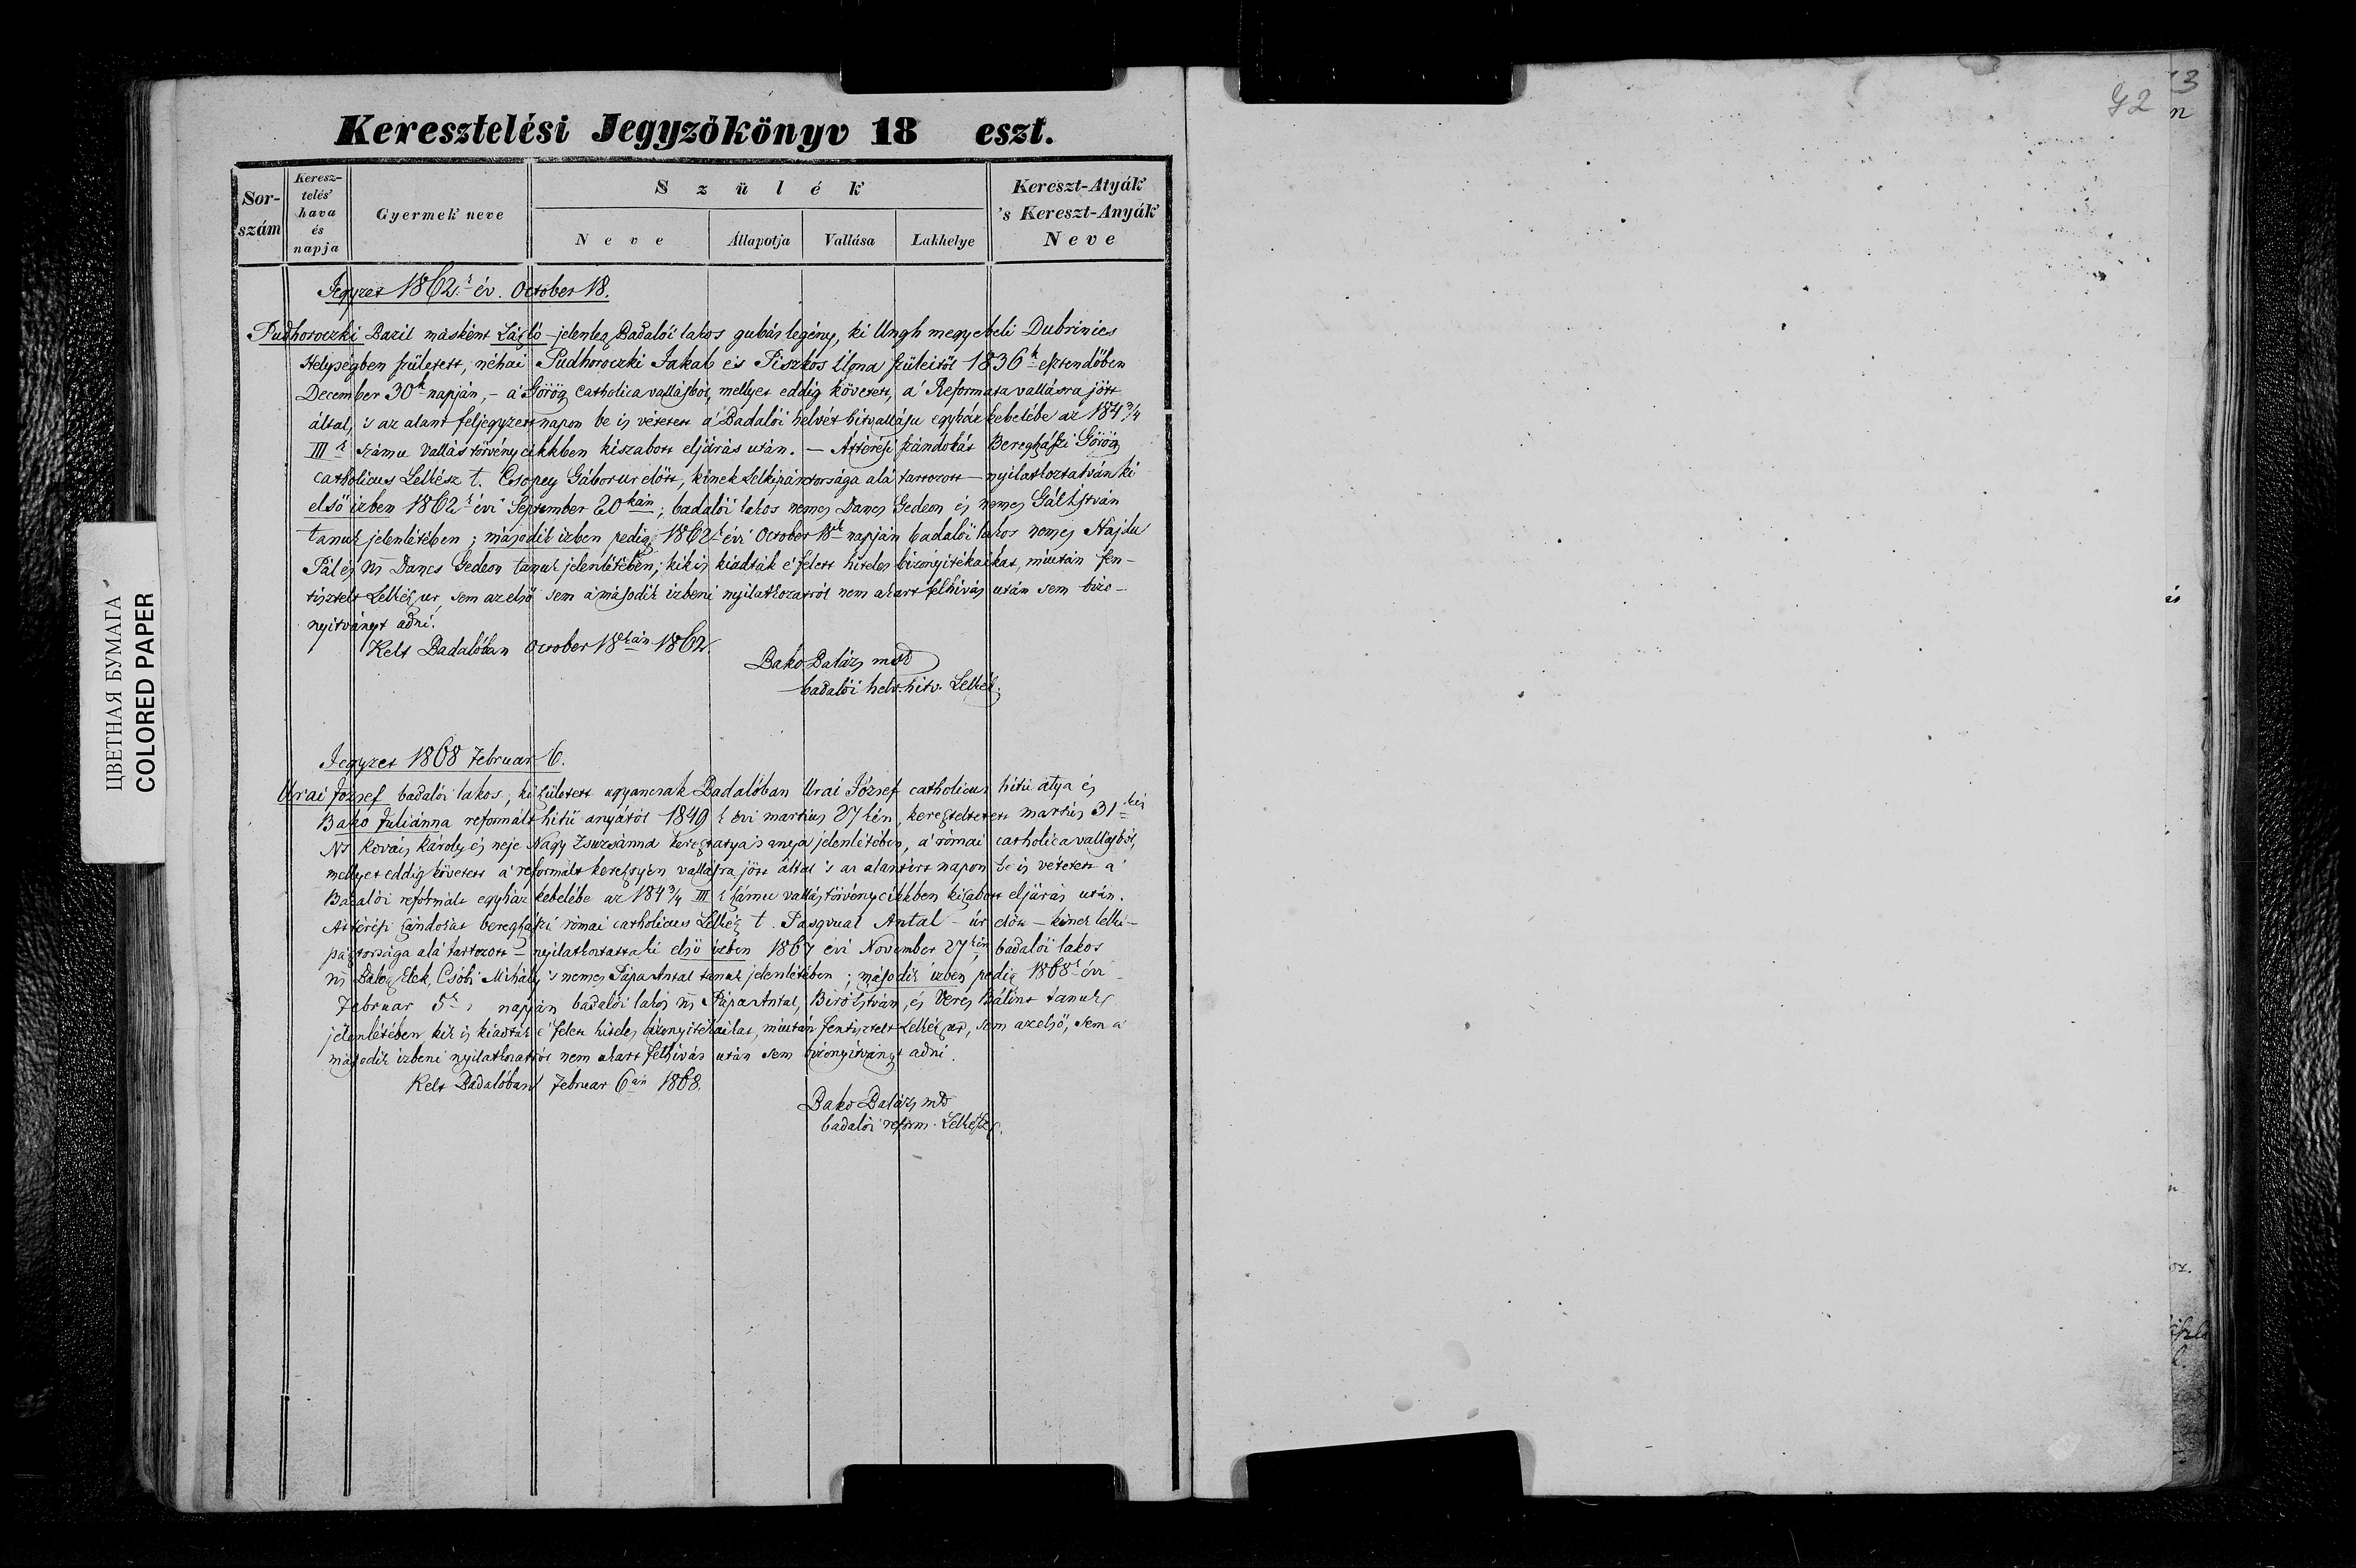 Keresztelési Jegyzőkönyv 18 eszt.
Sor-szám
Keresz-telés' hava és napja
Gyermek' neve
Szülék
Neve
Állapotja
Vallása
Lakhelye
Kereszt-Atyák 's Kereszt-Anyák Neve
Jegyzet 1862k év. October 18.
Pudhoroczki Bazil másként László jelenleg Badalói lakos gubás legény, ki Ungh megyebeli Dubrinics
Helységben született, néhai Pudhoroczki Jakab és Piszkos Ilona szüleitől 1836k esztendőben
December 30k napján, – a' Görög Catholica vallásból, mellyet eddig követett, a' Reformata vallásra jött
által, 's az alant feljegyzett napon be is vétetett a' Badalói helvét hitvallásu egyház kebelébe az 184 3/4
IIIk számu vallás törvénycikkben kiszabott eljárás után. – Áttérési szándokát Beregszászi Görög
catholicus Lelkész t. Csopey Gábor ur előtt, kinek Lelkipásztorsága alá tartozott – nyilatkoztatván ki
első izben 1862k évi September 20kán; badalói lakos nemes Dancs Gedeon és nemes Gál István
tanuk jelenlétében; második izben pedig 1862k évi October 18k napján badalói lakos nemes Hajdu
Pál és Ns Dancs Gedeon tanuk jelenlétében; kik is kiadták e' felett hiteles bizonyitékaikat, miután fen-
tisztelt Lelkész ur, sem az első sem a' második izbeni nyilatkozatról nem akart felhivás után sem bizo-
nyitványt adni.
Kelt Badalóban October 18kán 1862.
Bakó Balázs
badalói helv. hitv. Lelkész
Jegyzet 1868 Februar 6.
Urai József badalói lakos, ki született ugyancsak Badalóban Urai József catholicus hitü atya és
Bako Juliánna reformált hitü anyától 1849k évi martius 27kén, kereszteltetett martius 31kén
Ns Kovács Károly és neje Nagy Zsuzsánna keresztatya 's anya jelenlétében, a' római catholica vallásból,
mellyet eddig követett a' reformált keresztyén vallásra jött által 's az alantirt napon be is vétetett a'
Badalói reformált egyház kebelébe az 184 3/4 IIIk számu vallás törvénycikkben kiszabott eljárás után.
Áttérési szándokát beregszászi római catholicus Lelkész t. Pasqual Antal úr előtt – kinek lelki-
pásztorsága alá tartozott – nyilatkoztatta ki első izben 1867 évi November 27kén, badalói lakos
Ns Balog Elek, Csóbi Mihály 's nemes Pápa Antal tanuk jelenlétében; második izben pedig 1868k évi
Februar 5k napján badalói lakos Ns Pápa Antal, Biró István, és Veres Bálint tanuk
jelenlétében, kik is kiadták e' felett hiteles bizonyitékaikat, miután fentisztelt Lelkész ur, sem az első, sem a'
második izbeni nyilatkozatról nem akart felhivás után sem bizonyitványt adni.
Kelt Badalóban Februar 6án 1868.
Bako Balázs
badalói reform. Lelkész
42
13
ЦВЕТНАЯ БУМАГА
COLORED PAPER